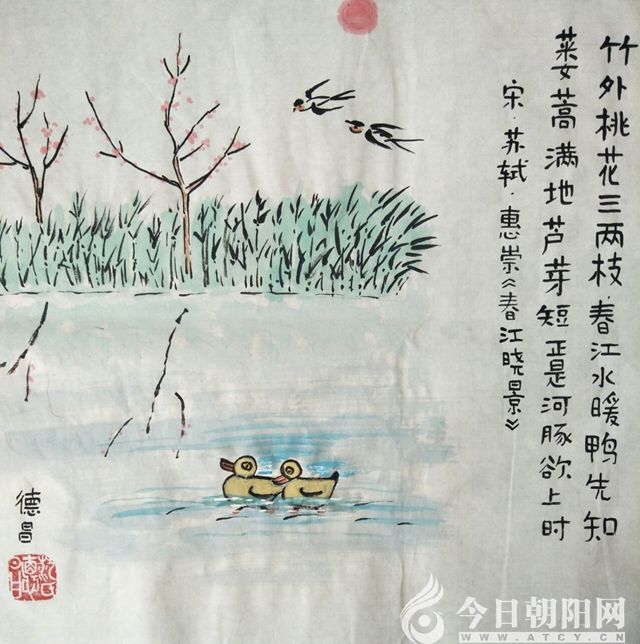 竹外桃花三两枝·春江水暖鸭先知
蒌蒿满地芦芽短正是河豚欲上时
宋·苏轼·惠崇《春江晓景》
德昌
今日朝阳网
WWW.ATCY.CN